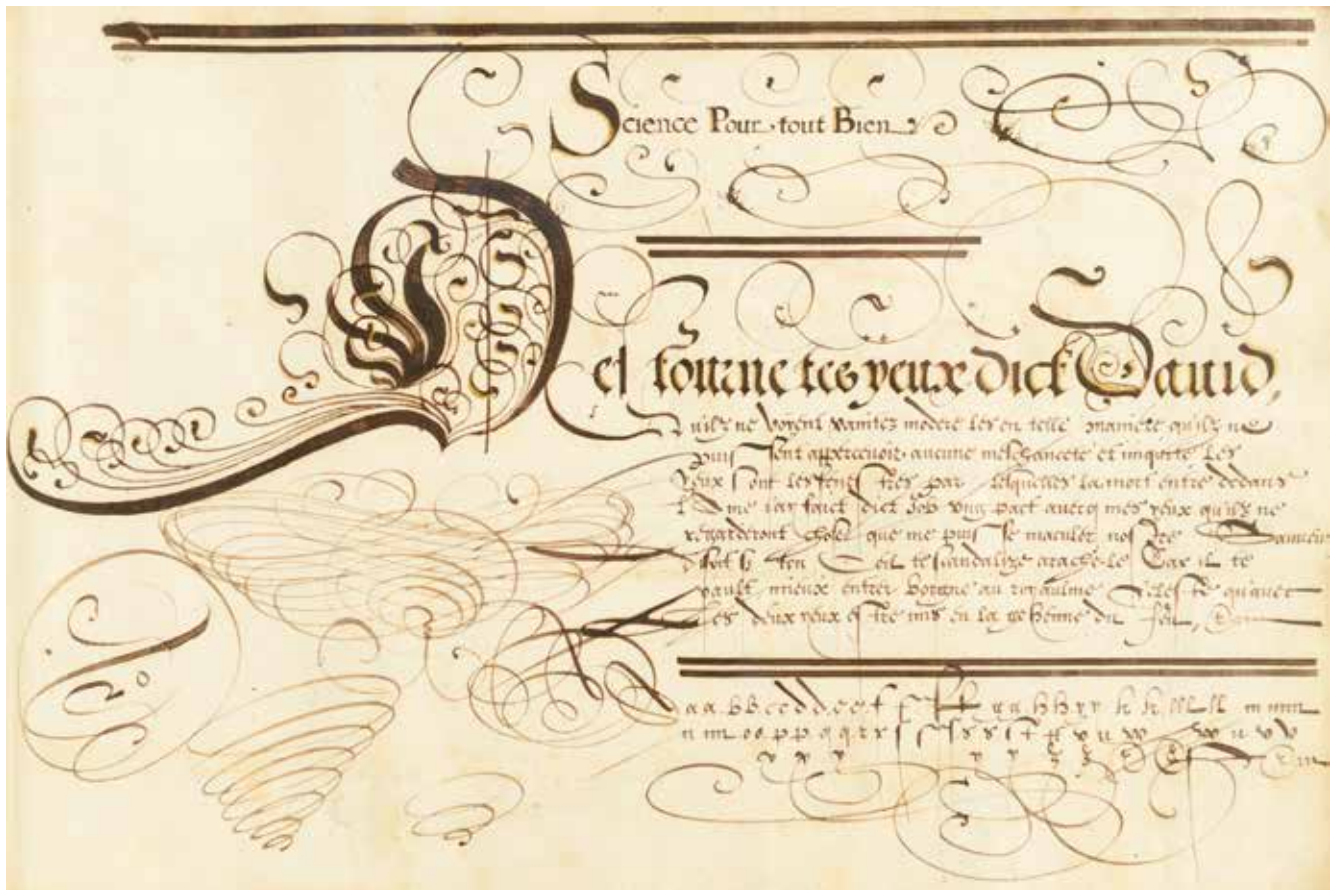 Science Pour tout Bien
Destourne tes yeux dict Dauid,
Quilz ne voyent vanitez modere les en telle maniere quilz ne
puissent appercevoir aucune meschancete et iniquite Les
yeux sont les fenestres par lesquelles la mort entre dedans
l'Ame iay faict dict Job vng pact auecq mes yeux quilz ne
regarderont chose que me puisse maculer nostre
disoit Si ton Oeil te scandalize arache-le Car il te
vault mieux entrer borgne au royaulme Celeste quauec
les deux yeux estre mis en la gehenne du feu,
a a b b c c d d e e f f g g h h y y k k ll ll m m
n m o o p p q q r r s s s s t v u w w u v v
y x y